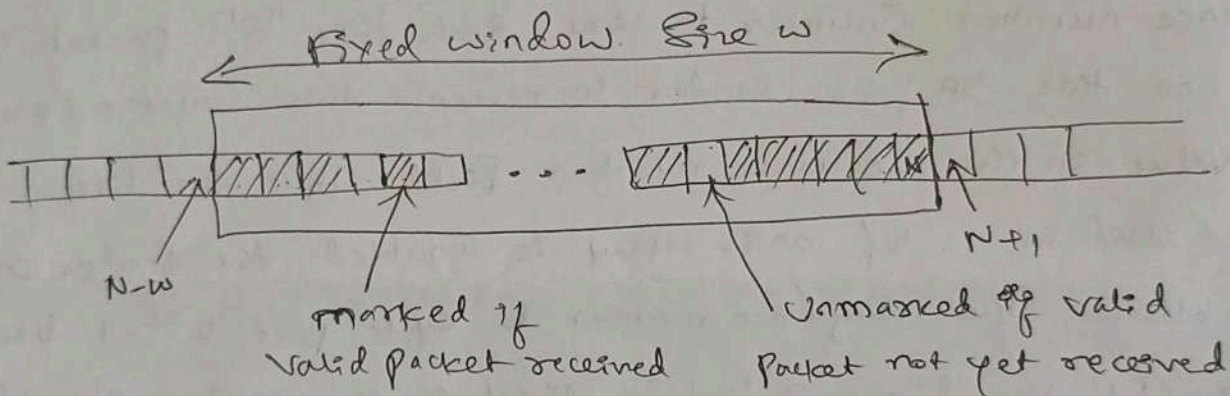 Fixed window Size w
N-w
N+1
marked if
valid packet received
Unmarked if valid
Packet not yet received